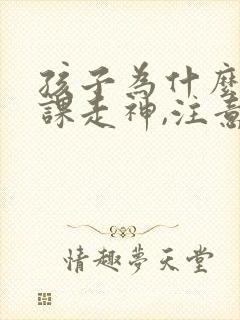 孩子為什麼
課走神,注意
情趣夢天堂